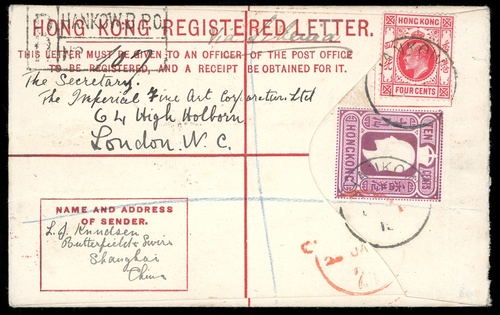 R HANKOW B.P.O.
HONG KONG REGISTERED LETTER.
THIS LETTER MUST BE GIVEN TO AN OFFICER OF THE POST OFFICE
TO BE REGISTERED, AND A RECEIPT BE OBTAINED FOR IT.
The Secretary.
The Imperial Fine Art Corporation Ltd
64 High Holborn
London. W. C.
HONG KONG
FOUR CENTS
HONGKONG
TEN CENTS
NAME AND ADDRESS
OF SENDER.
L. J. Knudsen
Butterfield & Swire
Shanghai
China
JA